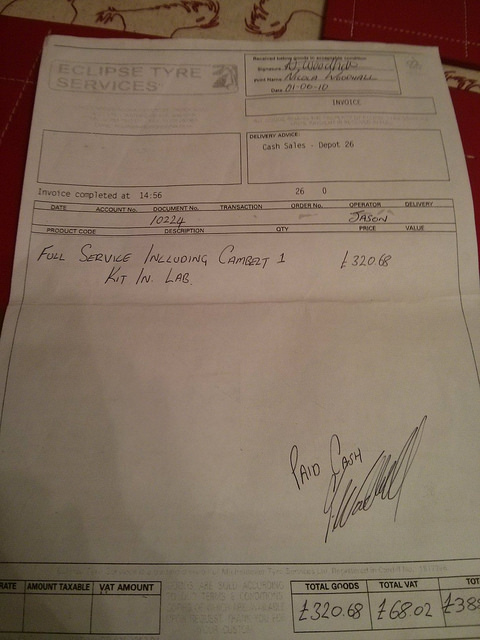 ECLIPSE TYRE
SERVICES
Received billing goods in acceptable condition
Signature N Woodhall
Print Name NICOLA WOODHALL
Date 01-06-10
INVOICE
DELIVERY ADVICE:
Cash Sales - Depot 26
Invoice completed at 14:56 26 0
DATE ACCOUNT No. DOCUMENT No. TRANSACTION ORDER No. OPERATOR DELIVERY
10224 JASON
PRODUCT CODE DESCRIPTION QTY PRICE VALUE
FULL SERVICE INCLUDING CAMBELT 1 £320.68
KIT IN. LAB.
PAID CASH
RATE AMOUNT TAXABLE VAT AMOUNT TOTAL GOODS TOTAL VAT TOT
£320.68 £68.02 £38